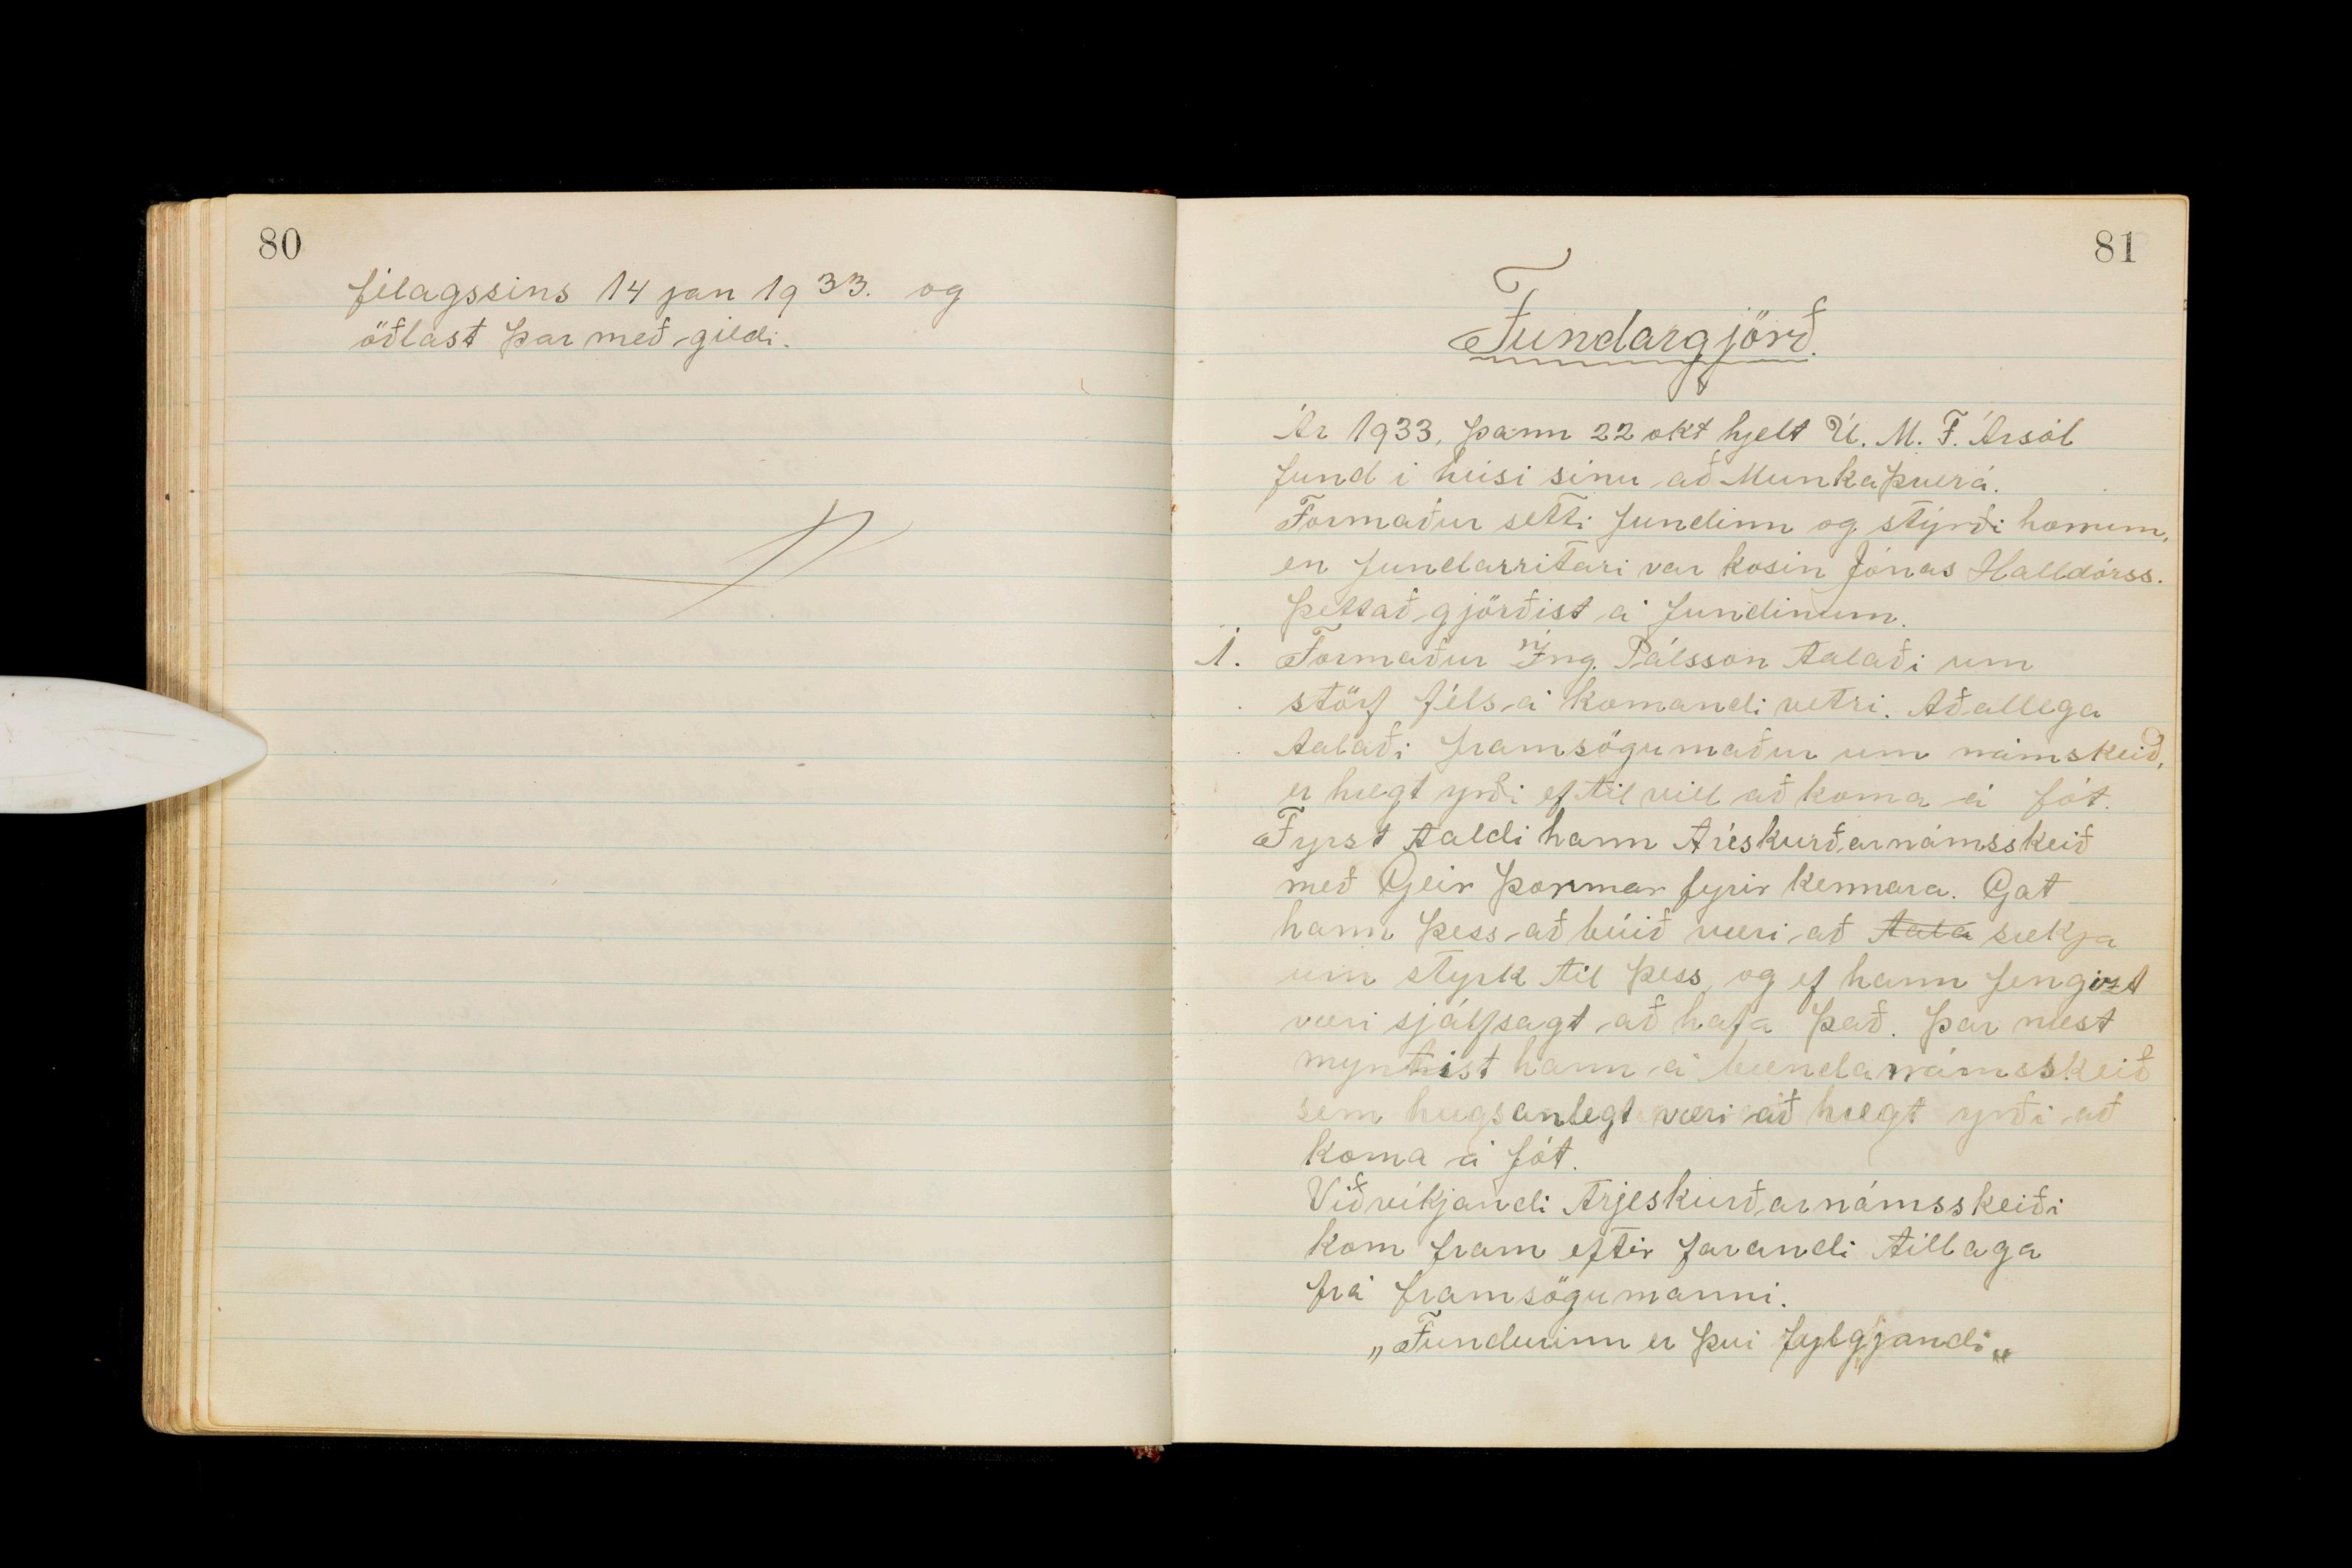 80
félagssins 14 jan 1933. og
öðlast þar með gildi.
81
Fundargjörð.
Ár 1933, þann 22 okt hjelt U. M. F. Ársól
fund í húsi sínu að Munkaþverá.
Formaður setti fundinn og stýrði honum,
en fundarritari var kosin Jónas Halldórss.
Þettað gjörðist á fundinum.
1. Formaður Ing. Pálsson talaði um
störf féls á komandi vetri. Aðallega
talaði framsögumaður um námskeið,
er hægt yrði ef til vill að koma á fót.
Fyrst taldi hann tréskurðarnámsskeið
með Geir Þormar fyrir kennara. Gat
hann þess að búið væri að tala sækja
um styrk til þess, og ef hann fengist
væri sjálfsagt að hafa það. Þar næst
myntist hann á bændanámsskeið
sem hugsanlegt væri að hægt yrði að
koma á fót.
Viðvíkjandi trjeskurðarnámsskeiði
kom fram eftir farandi tillaga
frá framsögumanni.
„Fundurinn er því fylgjandi„